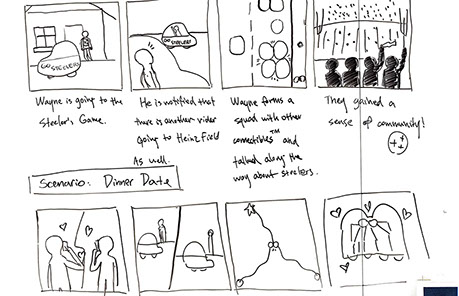 GO STEELERS
GO STEELERS
Wayne is going to the
Steelor's Game.
He is notified that
there is another rider
going to Heinz Field
As well.
Wayne forms a
squad with other
comectibles™ and
talked along the
way about steelers.
They gained a
sense of community!
++
Scenario: Dinner Date